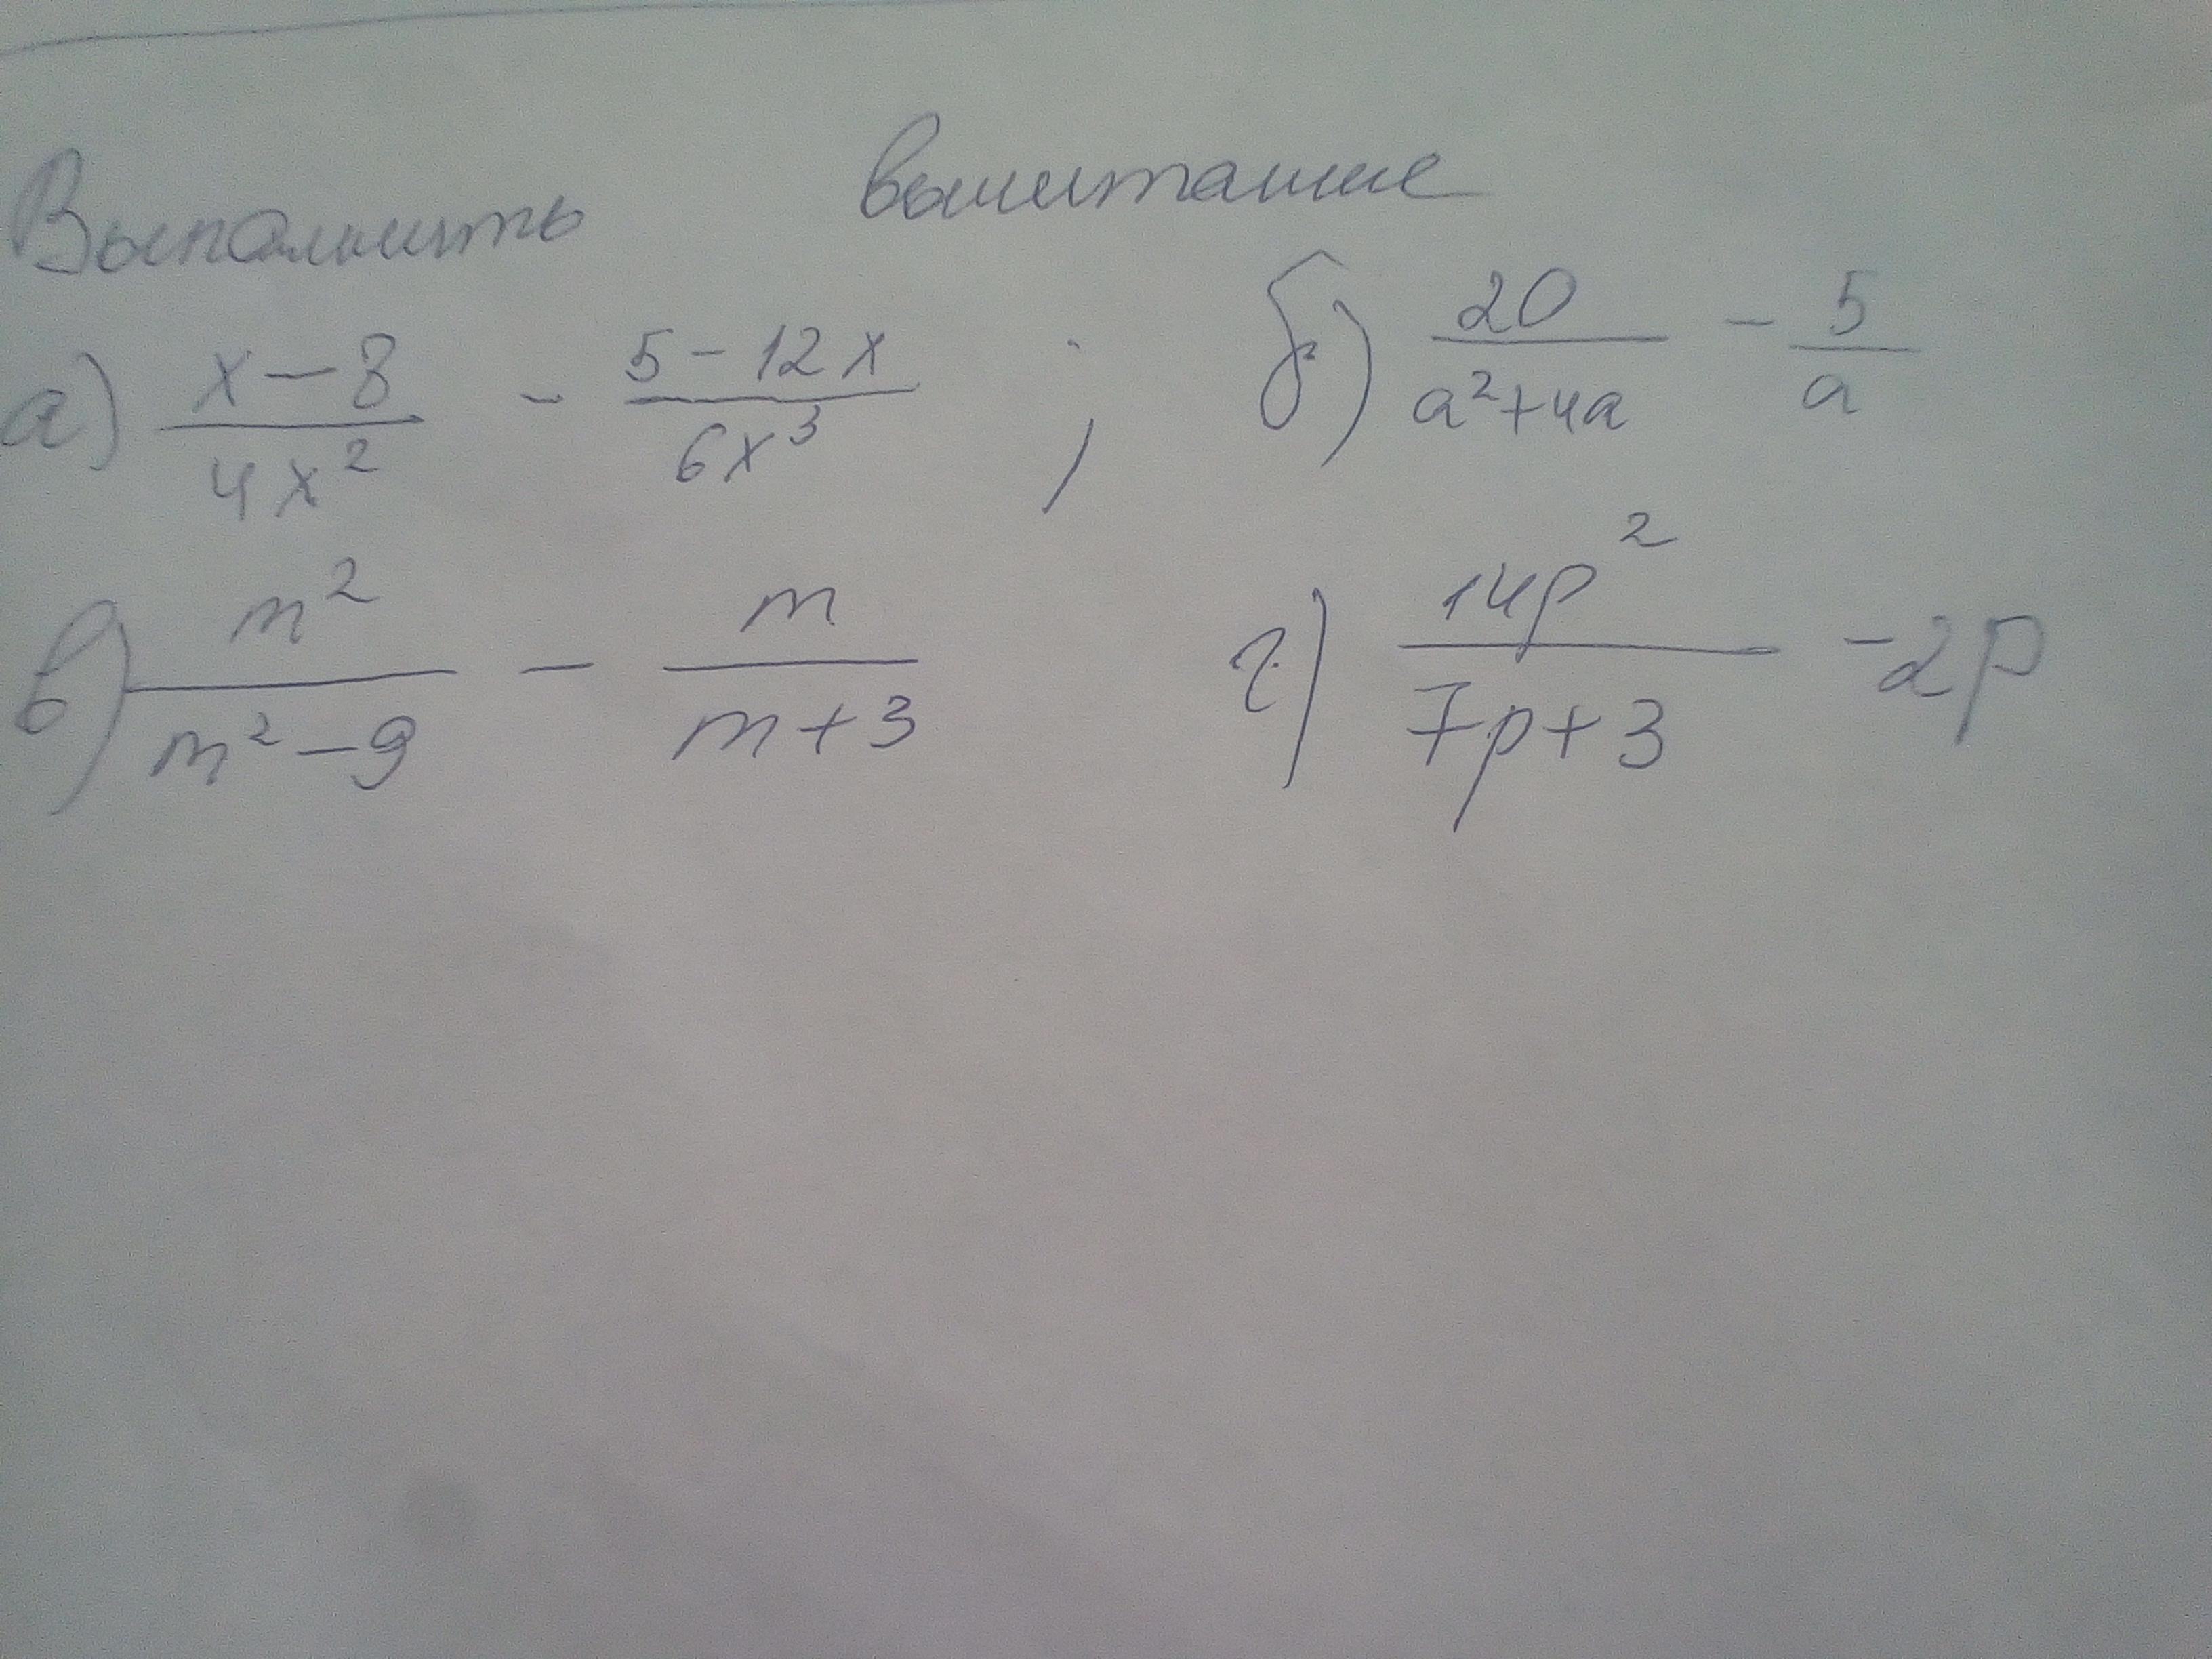 Выполнить вычитание
а) \frac{x-8}{4x^2} - \frac{5-12x}{6x^3} ; б) \frac{20}{a^2+4a} - \frac{5}{a}
в) \frac{m^2}{m^2-9} - \frac{m}{m+3} г) \frac{14p^2}{7p+3} - 2p